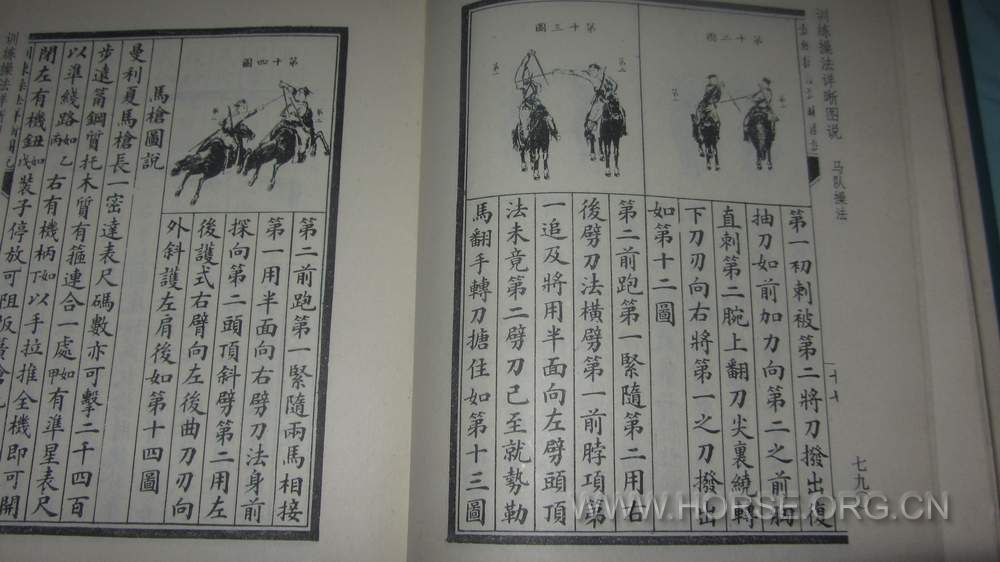 训练操法详晰图说 马队操法
七九
第十二圖
第一
第一初刺被第二將刀撥出復
抽刀如前加力向第二之前胸
直刺第二腕上翻刀尖裏繞轉
下刀刃向右將第一之刀撥出
如第十二圖
第十三圖
第一
第二
第二前跑第一緊隨第二用右
後劈刀法橫劈第一前脖項第
一追及將用半面向左劈頭頂
法未竟第二劈刀已至就勢勒
馬翻手轉刀搪住如第十三圖
第十四圖
第一
第二前跑第一緊隨兩馬相接
第一用半面向右劈刀法身前
探向第二頭頂斜劈第二用左
後護式右臂向左後曲刀刃向
外斜護左肩後如第十四圖
馬槍圖說
曼利夏馬槍長一密達表尺碼數亦可擊二千四百
步遠筩鋼質托木質有箍連合一處如甲有準星表尺
以準綫路如乙丙右有機柄如丁以手拉推全機即可開
閉左有機鈕如戊裝子停放可阻
训练操法详晰图说
WWW.HORSE.ORG.CN